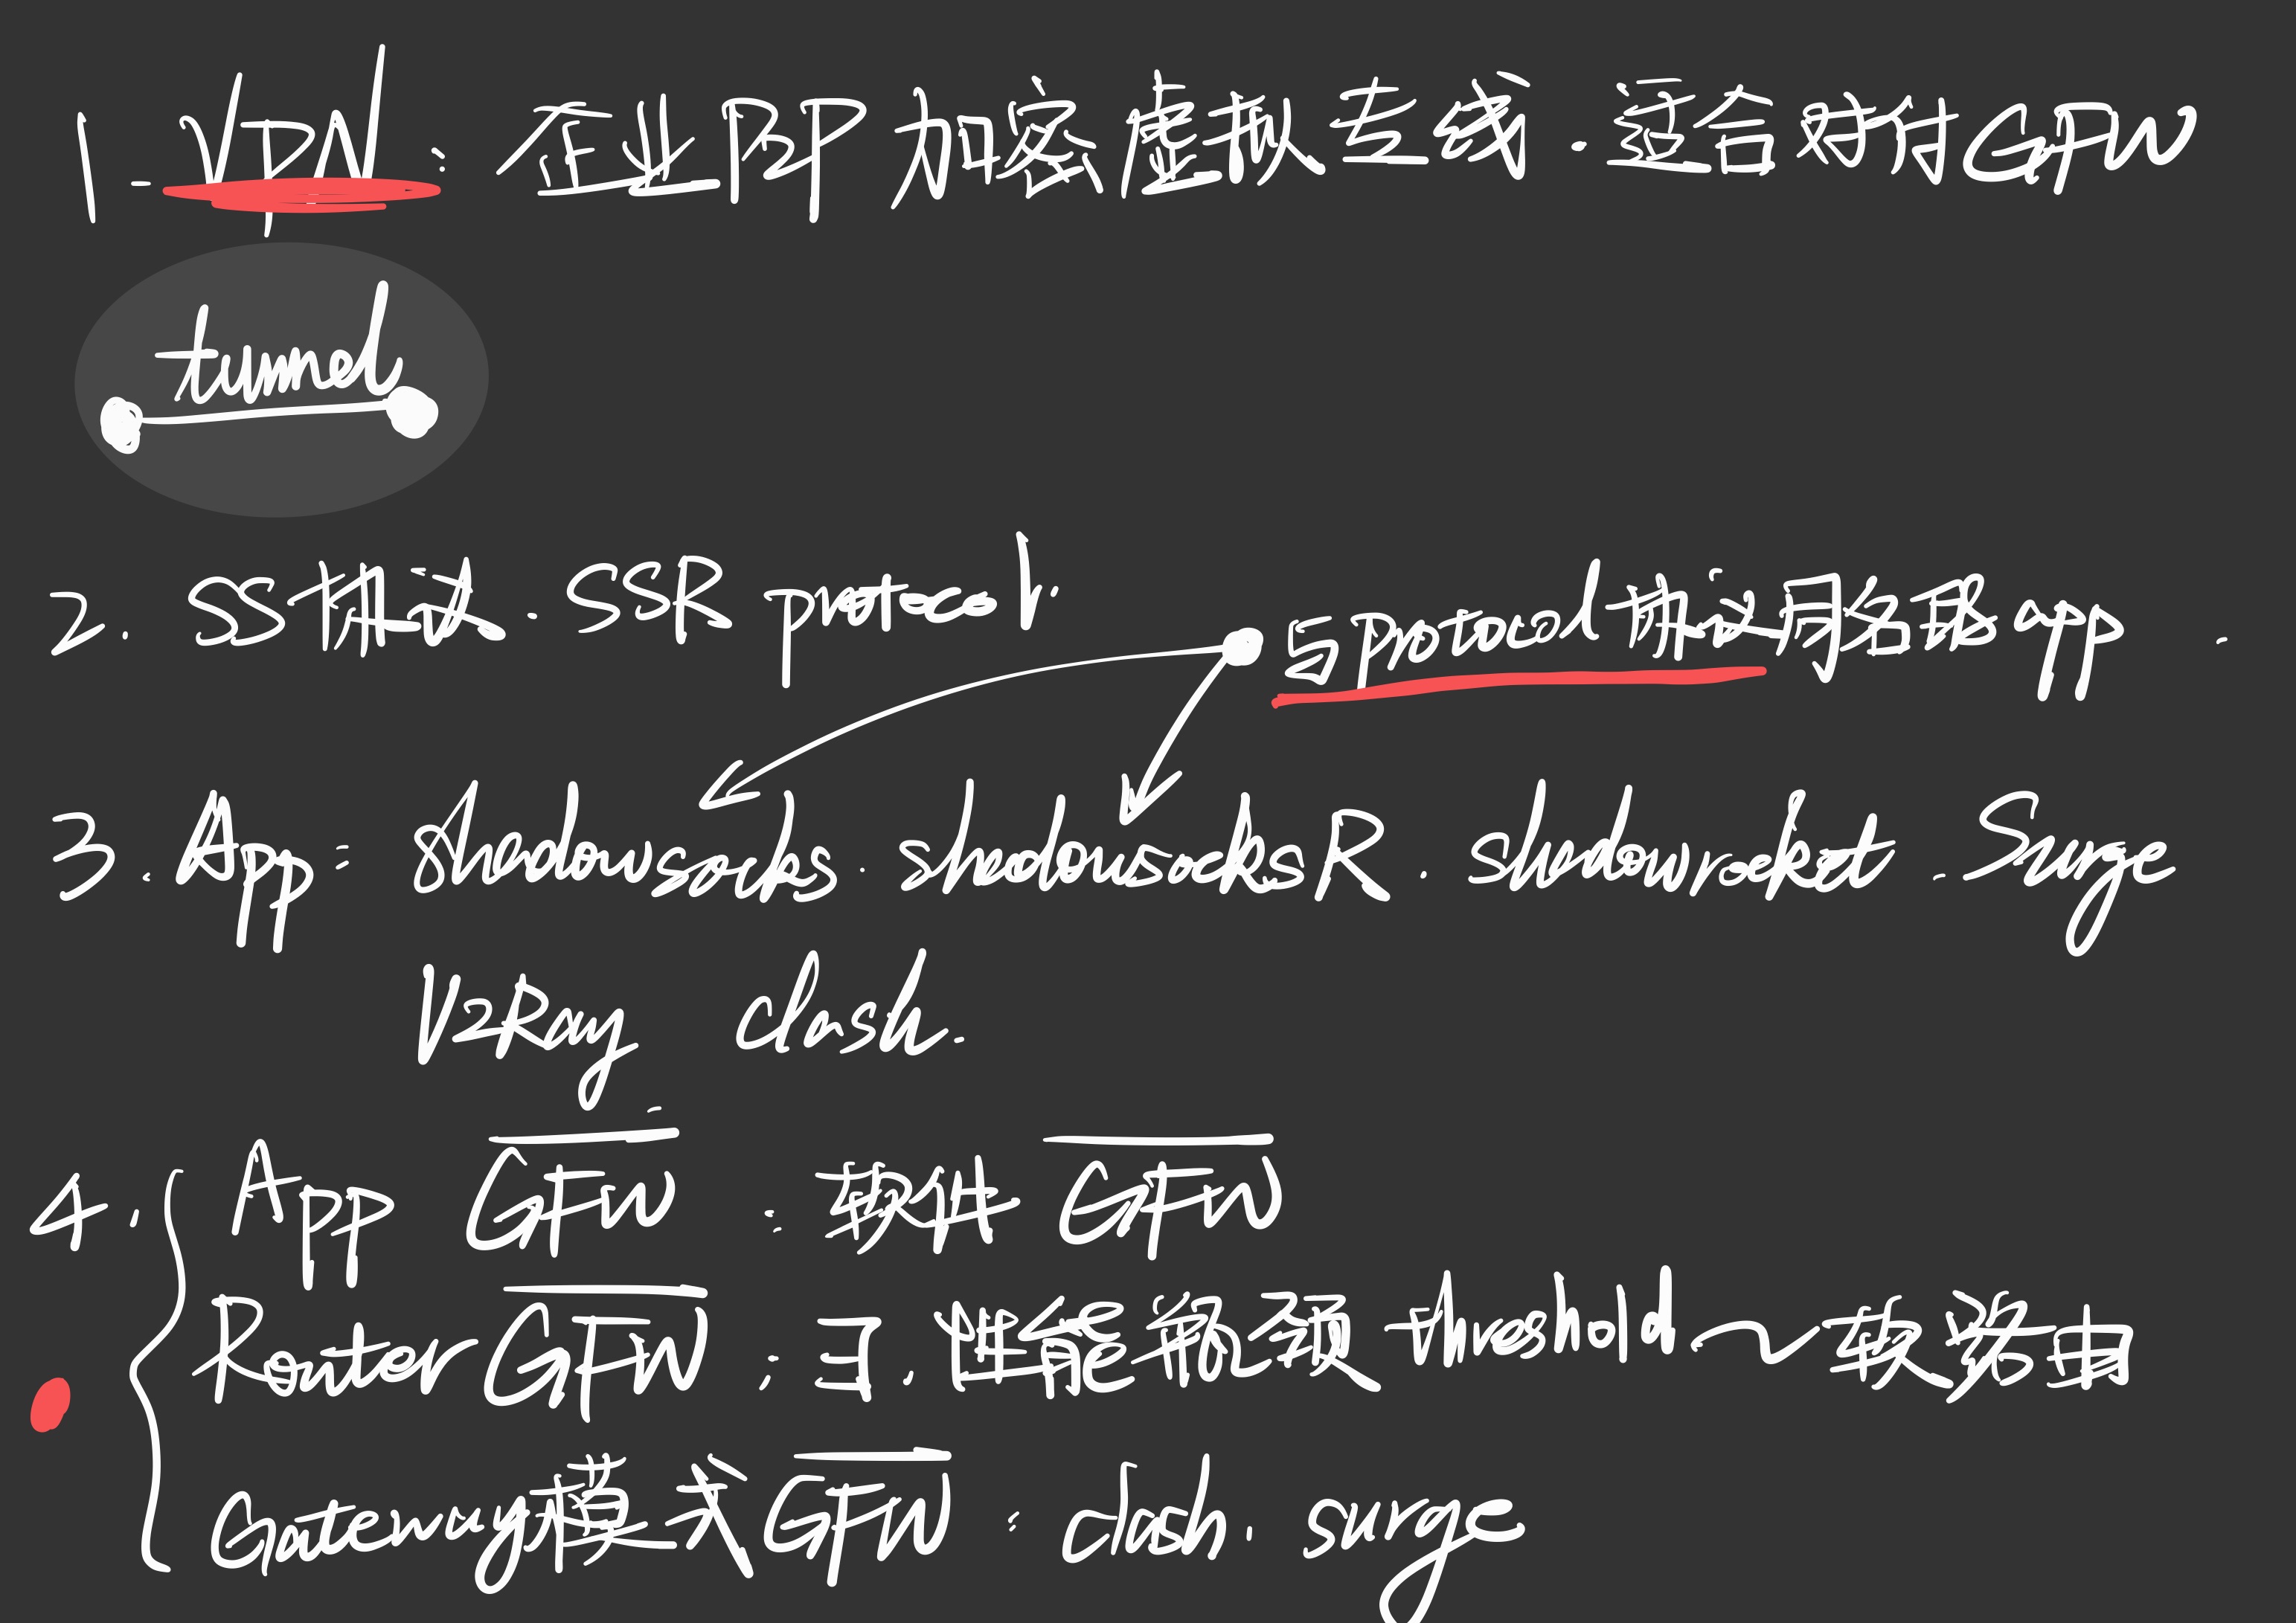 1. VPN: 企业PPP加密虚拟专线.适合对付GFW
tunnel
2. SS协议. SSR protocol. 与protocol协议同名App.
3. App: Shadowsocks. ShadowsocksR. Shadowrocket. Surge
V2Ray clash.
4. App GFW : 软件GFW
Router GFW : 性能有瓶颈, threshold 软路由
gateway模式GFW : clash. surge